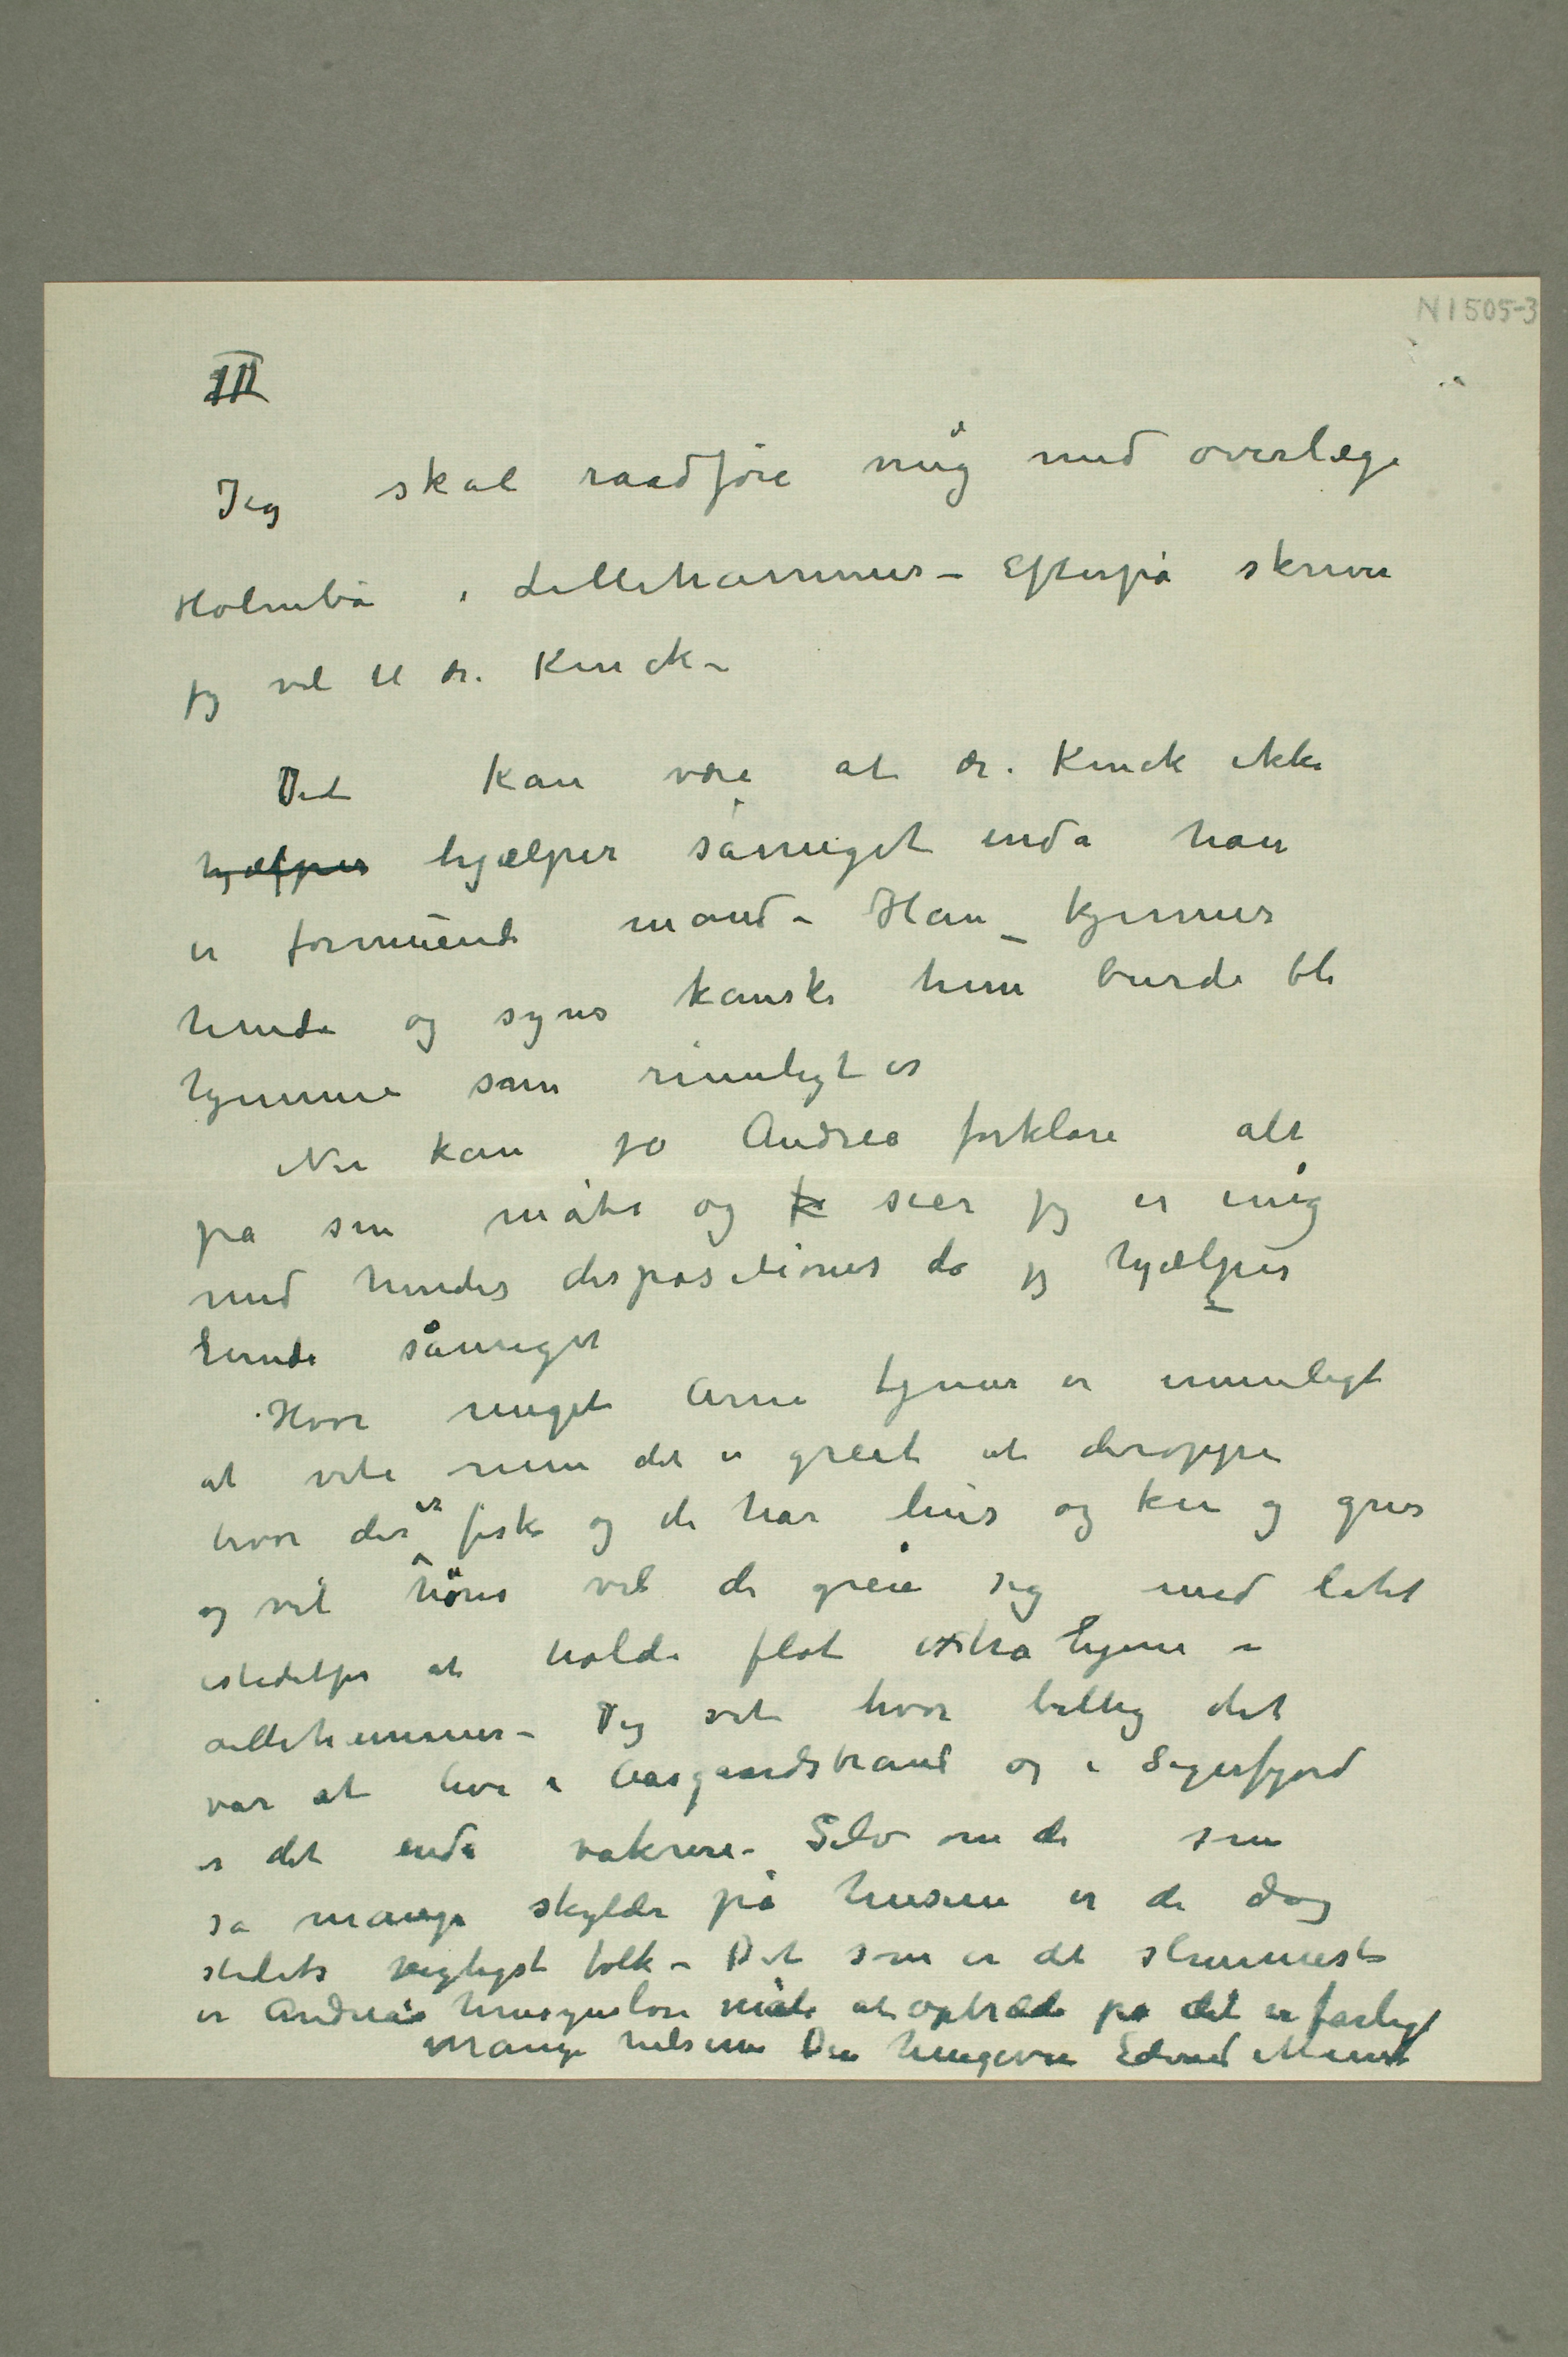 N 1505-3
III
Jeg skal raadføre mig med overlæge
Holmboe i Lillehammer – Efterpå skriver
jeg vel til dr. Kinck –
Det kan være at dr. Kinck ikke
hjælper hjælper såmeget enda han
er formuende mand – Han kjenner
hende og synes kanske hun burde bli
hjemme som rimeligt er
Nu kan jo Andrea forklare alt
på sin måte og sier jeg er enig
med hendes dispositioner da jeg hjælper
hende såmeget
Hvor meget Arne tjener er umuligt
at vite men det er greit at deroppe
hvor der er fisk og de har hus og ku og gris
og vel höns vel de greie sig med litet
istedetfor at holde flot extra hjem i
Lillehammer – Jeg vet hvor billig det
var at leve i Aasgaardstrand og i Sigerfjord
er det enda vakrere – Selv om de som
så mange skylder på husene er de dog
stedets vigtigst folk – Det som er det slemmeste
er Andreas hensynsløse måte at optræde på det er farligt
Mange hilsener Din hengivne Edvard Munch